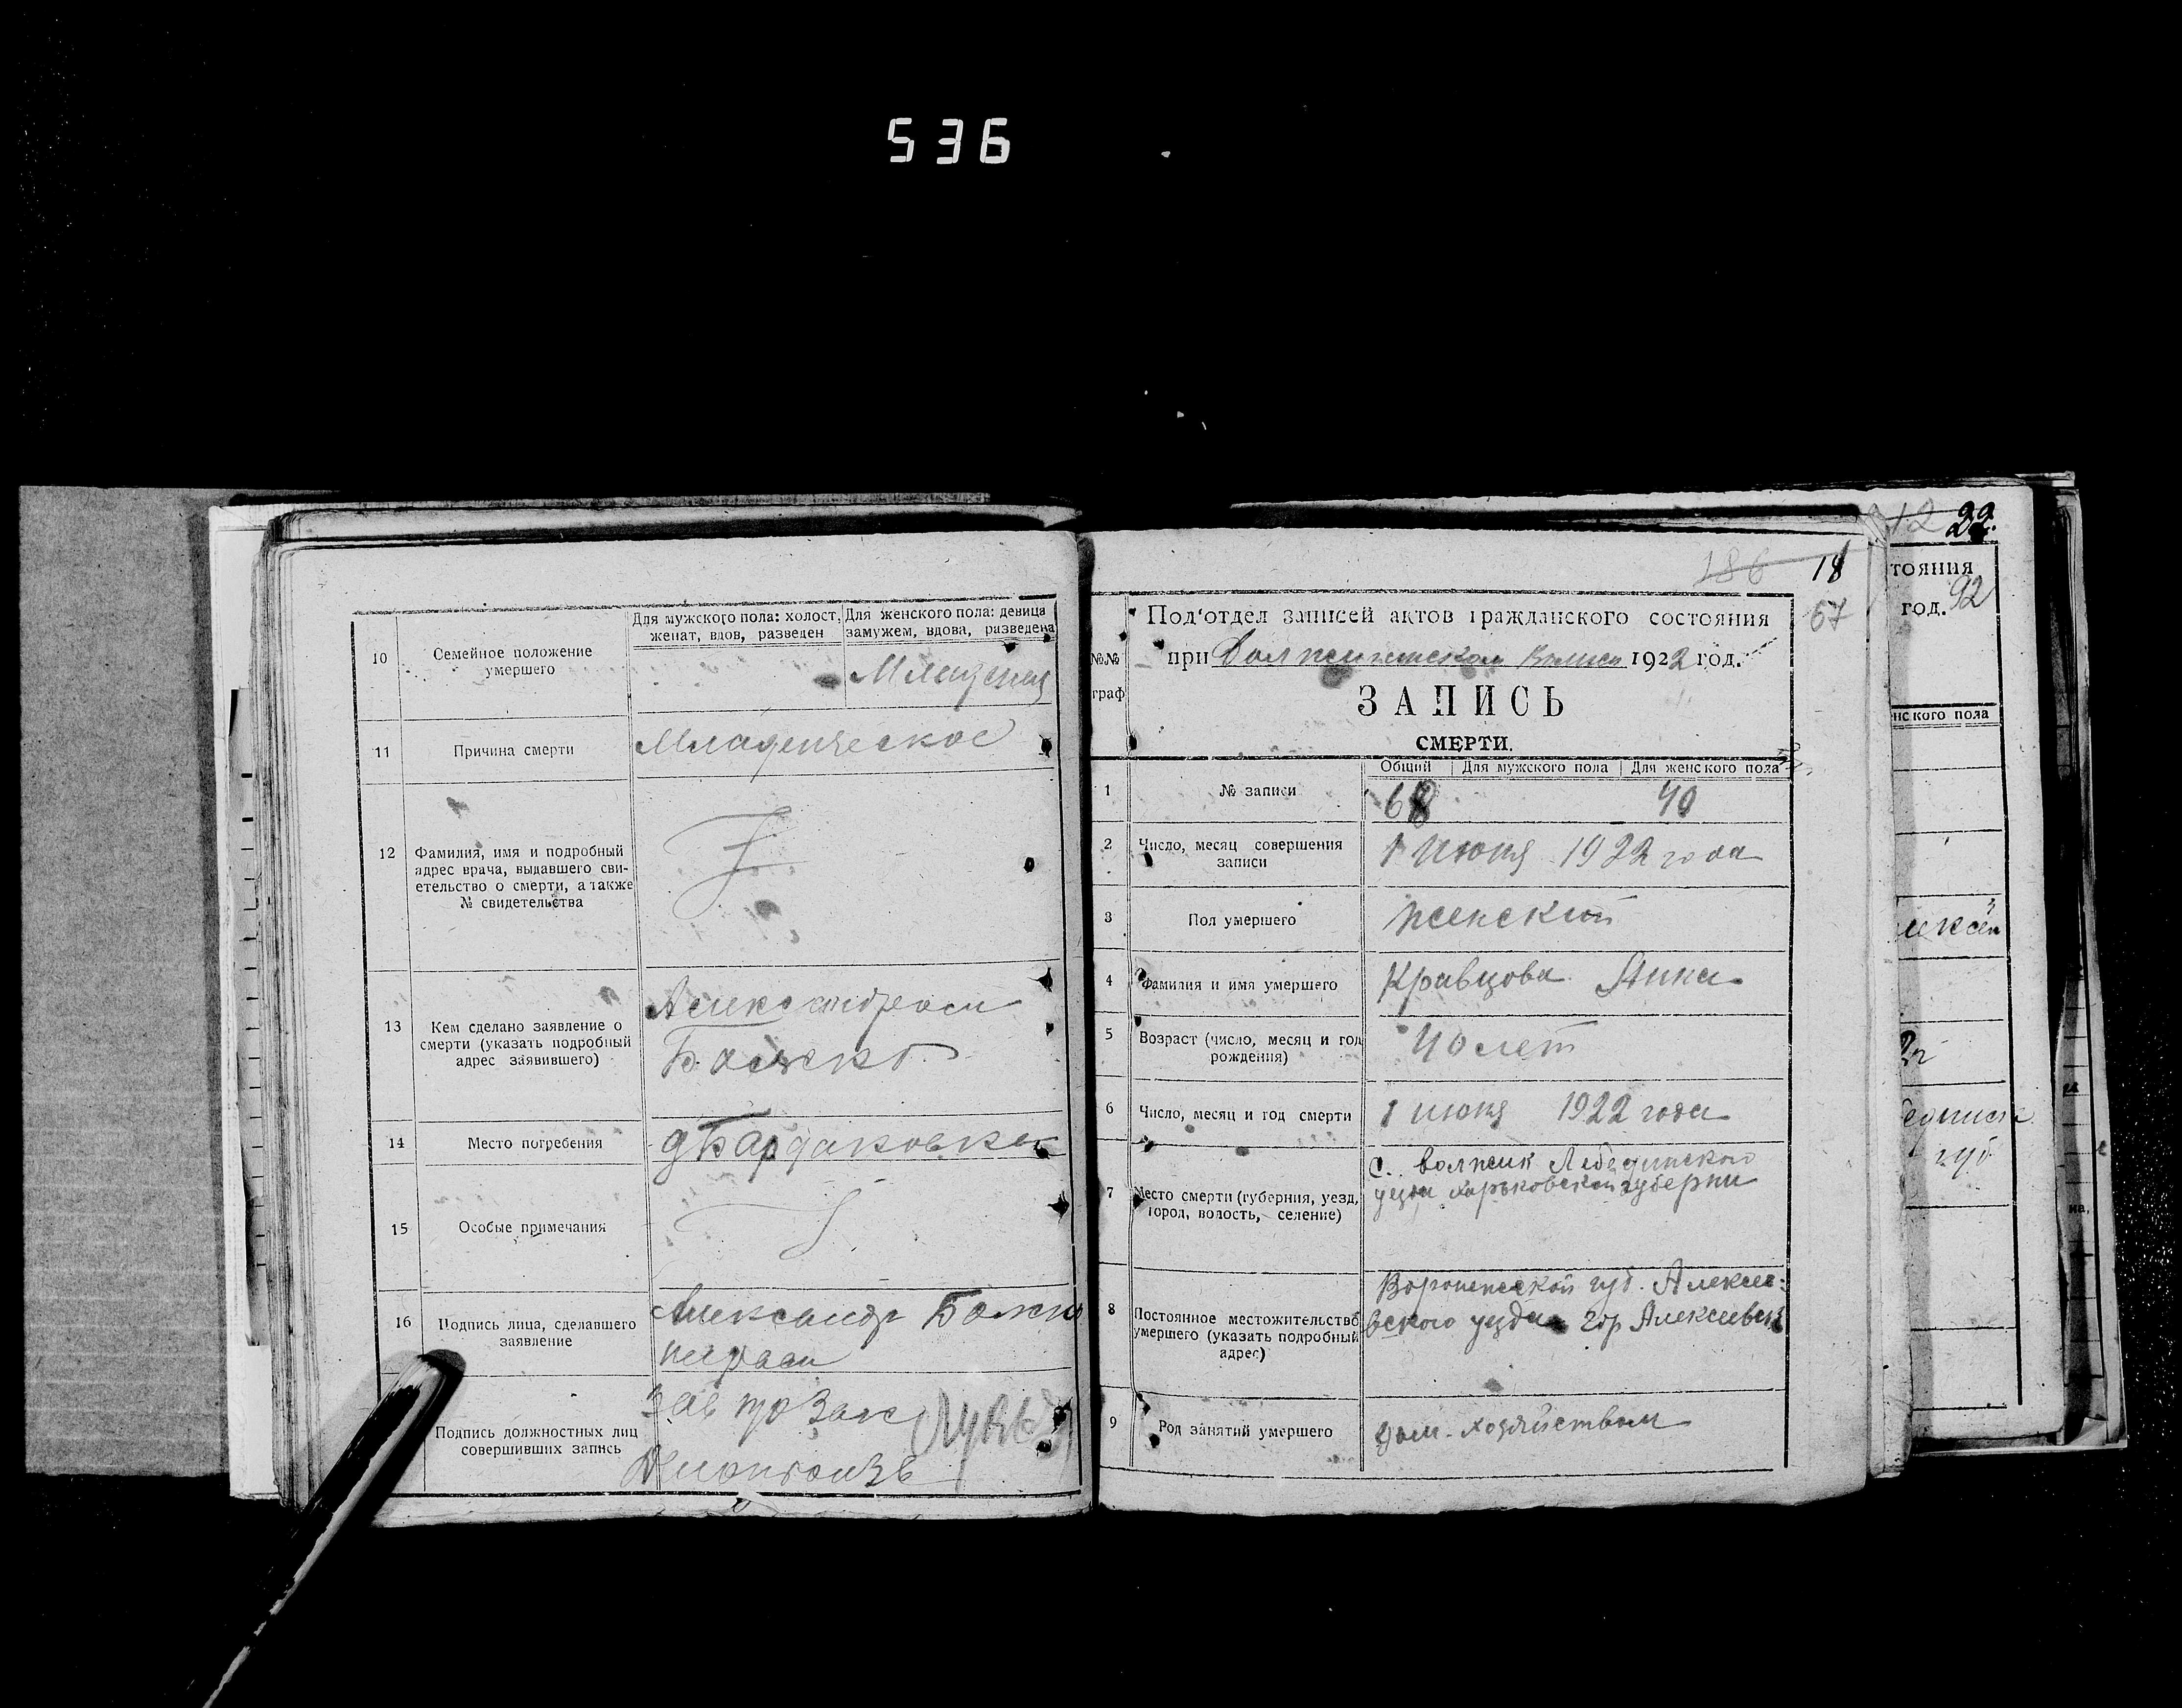 536
10
Семейное положение
умершего
Для мужского пола: холост,
женат, вдов, разведен
Для женского пола: девица
замужем, вдова, разведена
Младенец
11
Причина смерти
Младенческое
12
Фамилия, имя и подробный
адрес врача, выдавшего сви-
етельство о смерти, а также
№ свидетельства
13
Кем сделано заявление о
смерти (указать подробный
адрес заявившего)
14
Место погребения
д Бардаковка
15
Особые примечания
16
Подпись лица, сделавшего
заявление
Александр Божко
Подпись должностных лиц
совершивших запись
Зав п/о Загс
186 18
67
Под'отдел записей актов гражданского состояния
при 1922 год.
№№
граф
ЗАПИСЬ
СМЕРТИ.
Общий Для мужского пола Для женского пола
1 № записи 68 40
2 Число, месяц совершения
записи
1 июня 1922 года
3 Пол умершего женский
4 Фамилия и имя умершего Кравцова Анна
5 Возраст (число, месяц и год
рождения)
40 лет
6 Число, месяц и год смерти 1 июня 1922 года
7 Место смерти (губерния, уезд,
город, волость, селение)
с. Лебединского
уезда Харьковской губерни
8 Постоянное местожительство
умершего (указать подробный
адрес)
Воронежской губ. Алексее-
вского уезда гор Алексеевск
9 Род занятий умершего дом. хозяйством
12 22.
тояния
год. 92
нского пола
губ